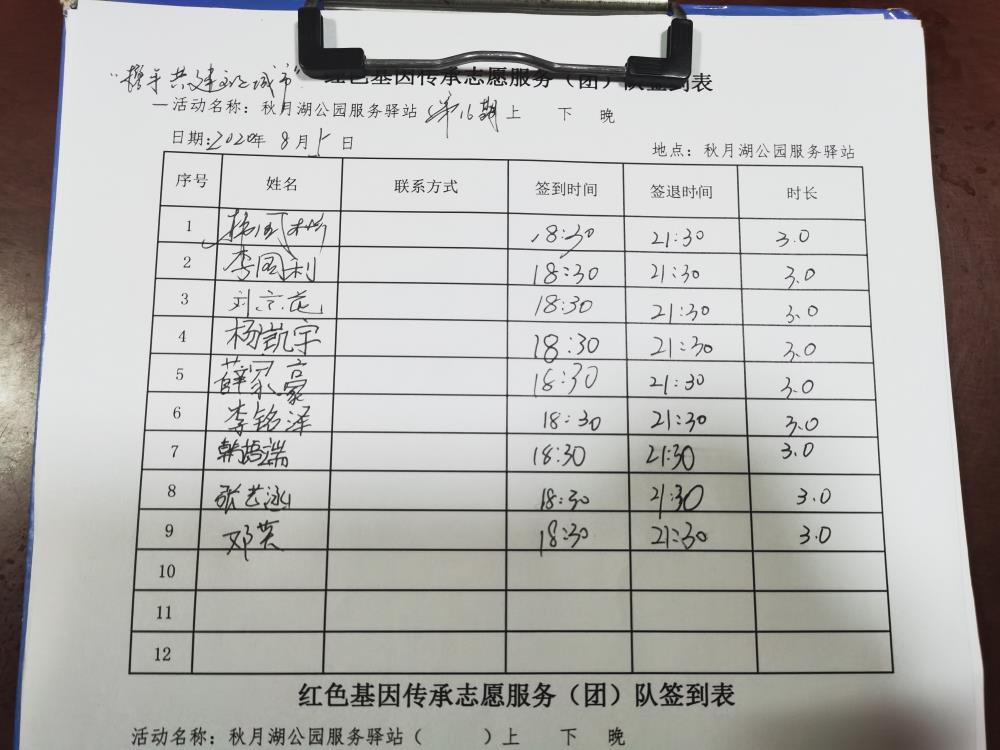 红色基因传承志愿服务（团）队签到表
“携手共建 城市”
活动名称：秋月湖公园服务驿站 第16期 上 下 晚
日期：2020年 8月5日
地点：秋月湖公园服务驿站
序号 姓名 联系方式 签到时间 签退时间 时长
1 杨 18:30 21:30 3.0
2 李国利 18:30 21:30 3.0
3 刘京花 18:30 21:30 3.0
4 杨凯宇 18:30 21:30 3.0
5 薛 豪 18:30 21:30 3.0
6 李铭泽 18:30 21:30 3.0
7 韩 端 18:30 21:30 3.0
8 张艺泳 18:30 21:30 3.0
9 邓英 18:30 21:30 3.0
10
11
12
红色基因传承志愿服务（团）队签到表
活动名称：秋月湖公园服务驿站（ ）上 下 晚